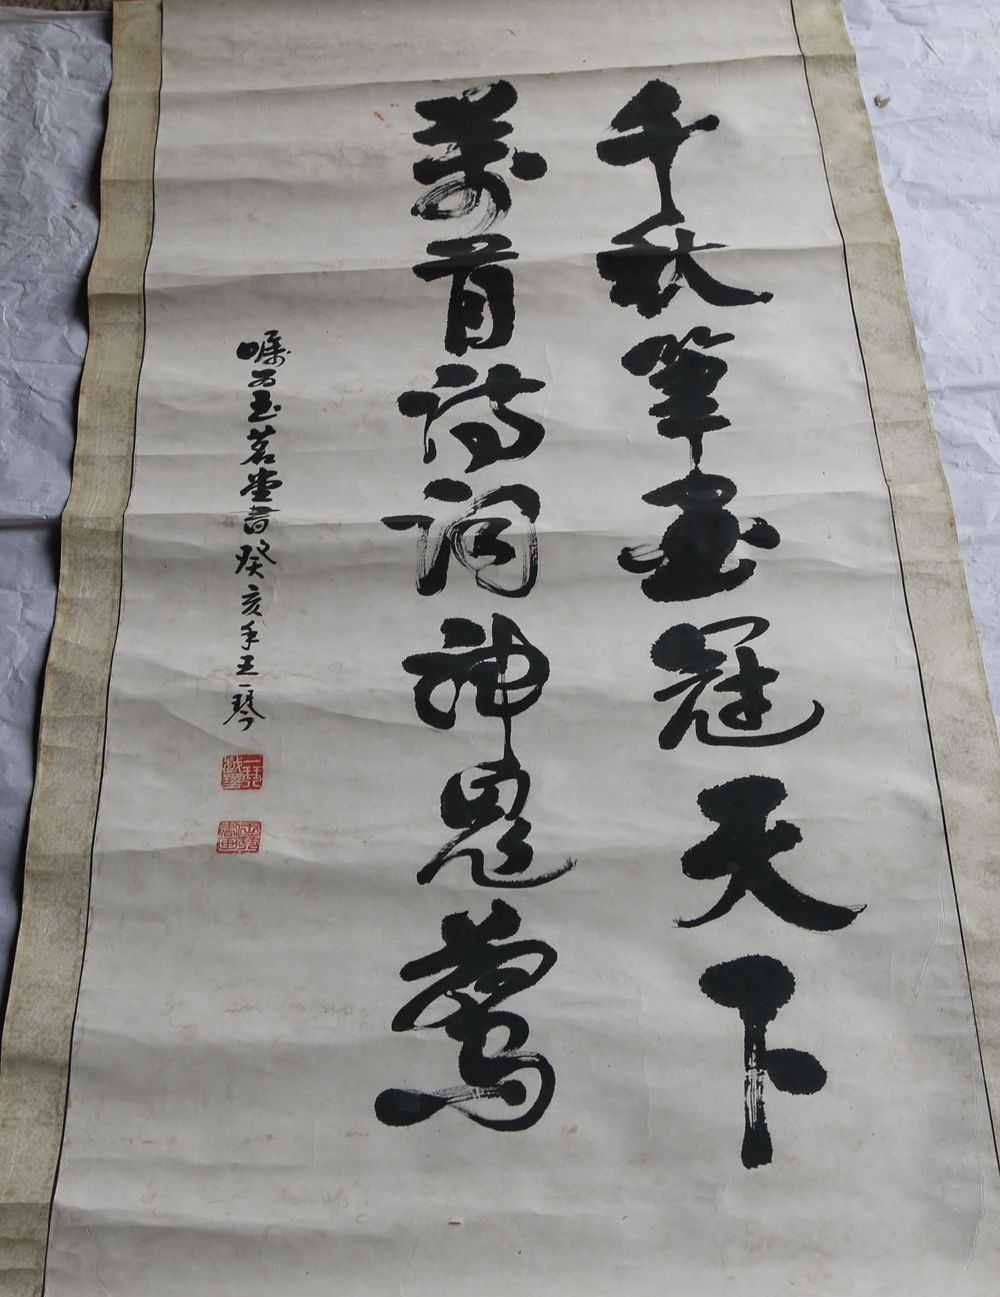 千秋筆畫冠天下
萬首詩詞神鬼驚
囑為玉茗堂書癸亥年王一琴